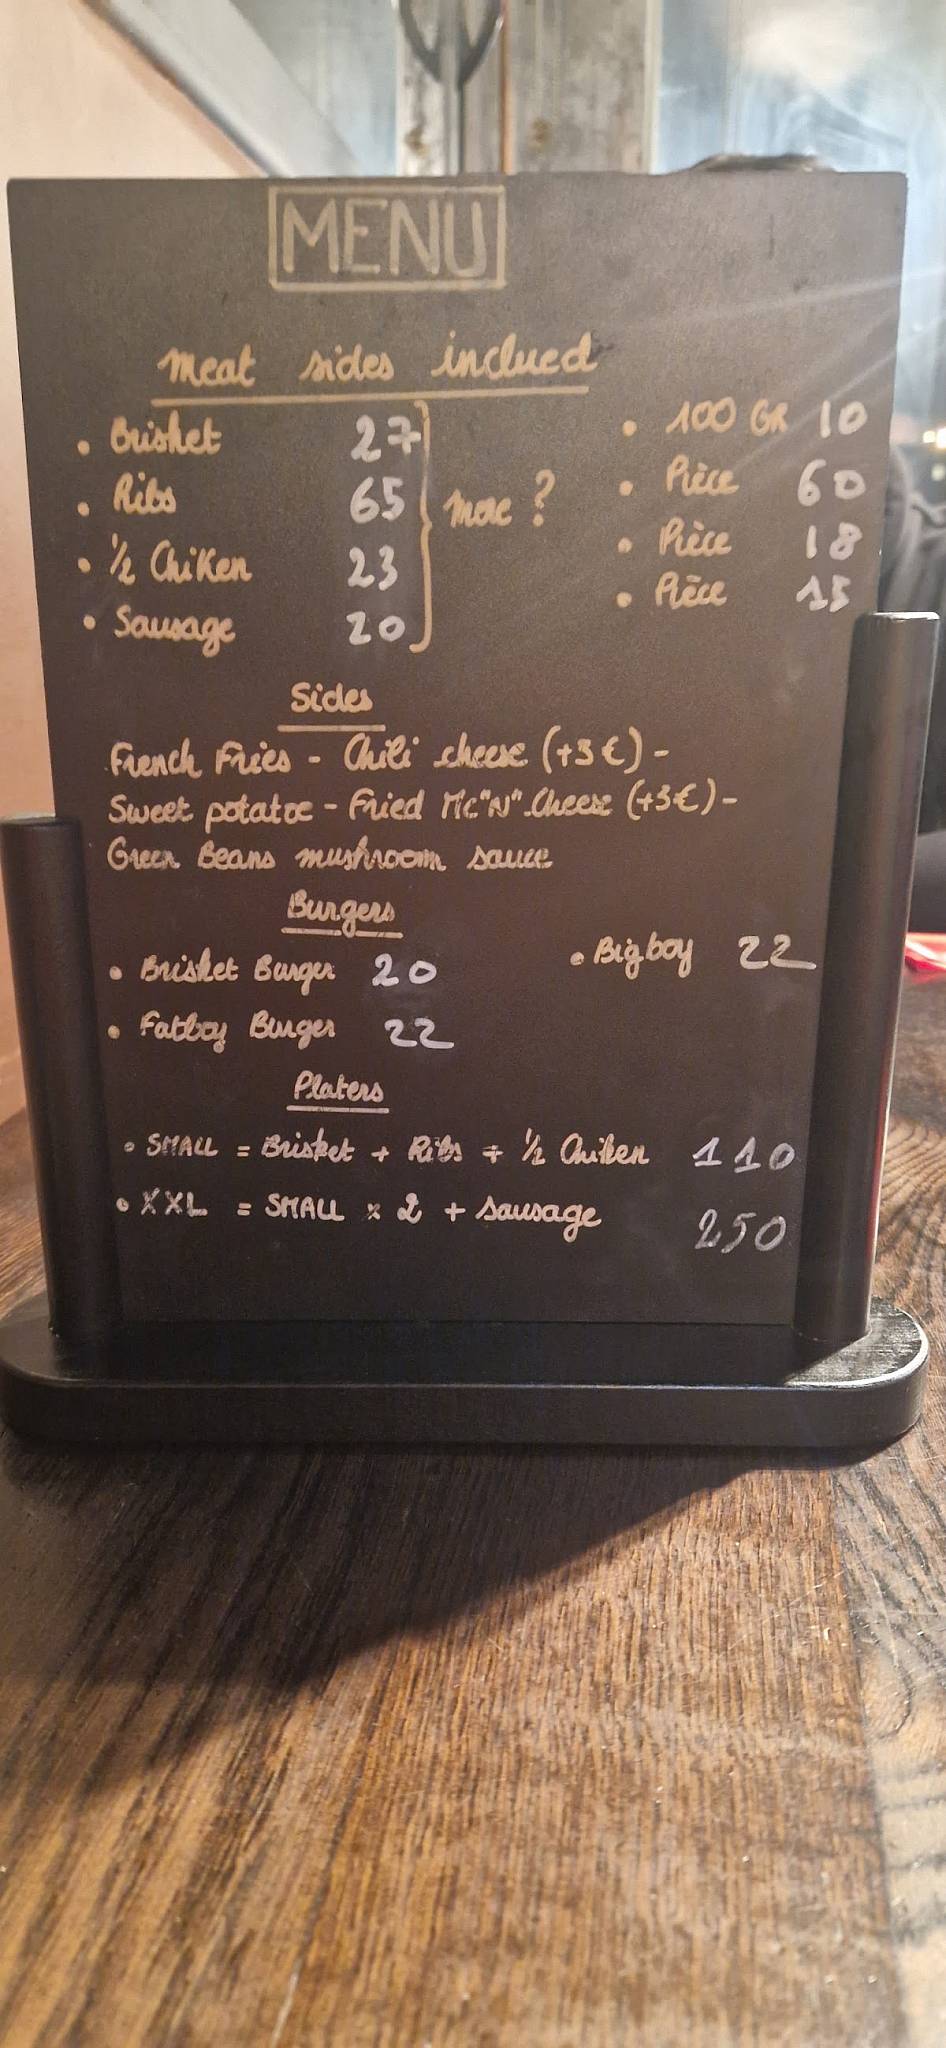 MENU
Meat sides inclued
• Brisket 27 • 100 GR 10
• Ribs 65 More ? • Pièce 60
• 1/2 Chiken 23 • Pièce 18
• Sausage 20 • Pièce 15
Sides
French Fries - Chili cheese (+3€) -
Sweet potatoe - Fried Mc"N".Cheese (+3€) -
Green Beans mushroom sauce
Burgers
• Brisket Burger 20 • Bigboy 22
• Fatboy Burger 22
Platers
• SMALL = Brisket + Ribs + 1/2 Chiken 110
• XXL = SMALL x 2 + sausage 250